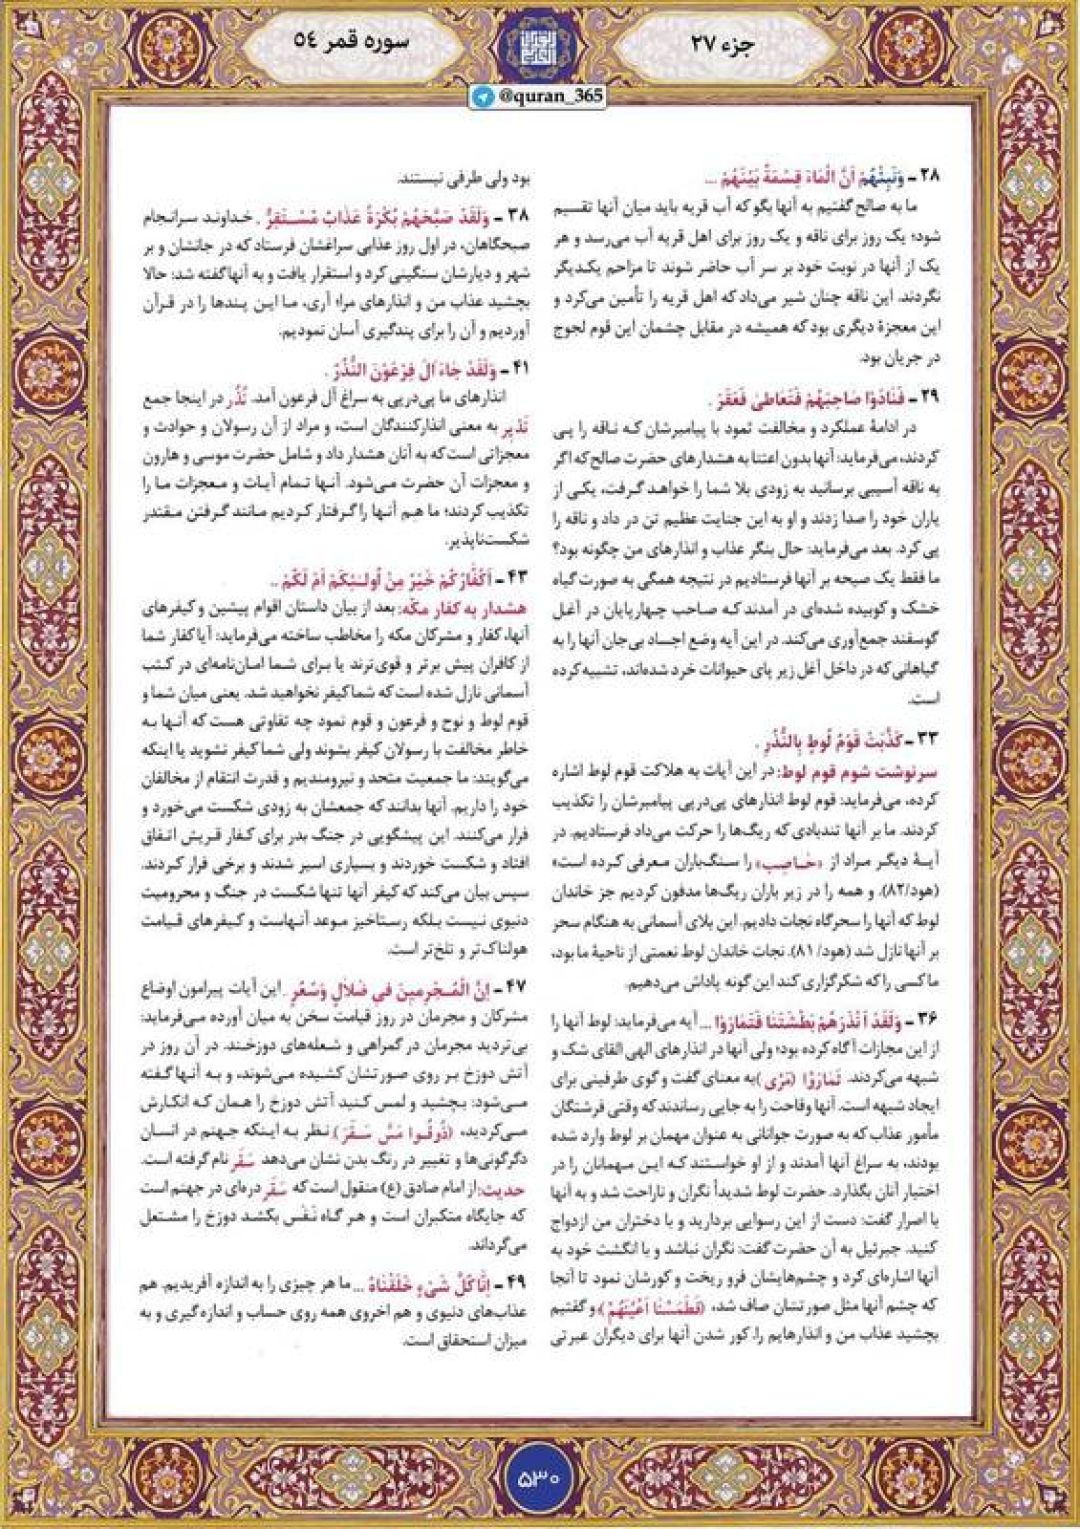 جزء ۲۷
سوره قمر ۵٤
@quran_365
۲۸ - وَنَبِّئْهُمْ اَنَّ الْمَاءَ قِسْمَةٌ بَيْنَهُمْ ...
ما به صالح گفتیم به آنها بگو که آب قریه باید میان آنها تقسیم
شود؛ یک روز برای ناقه و یک روز برای اهل قریه آب می‌رسد و هر
یک از آنها در نوبت خود بر سر آب حاضر شوند تا مزاحم یکدیگر
نگردند. این ناقه چنان شیر می‌داد که اهل قریه را تأمین می‌کرد و
این معجزهٔ دیگری بود که همیشه در مقابل چشمان این قوم لجوج
در جریان بود.
۲۹ - فَنَادَوْا صَاحِبَهُمْ فَتَعَاطىٰ فَعَقَرَ .
در ادامهٔ عملکرد و مخالفت ثمود با پیامبرشان که ناقه را پی
کردند، می‌فرماید: آنها بدون اعتنا به هشدارهای حضرت صالح که اگر
به ناقه آسیبی برسانید به زودی بلا شما را خواهد گرفت، یکی از
یاران خود را صدا زدند و او به این جنایت عظیم تن در داد و ناقه را
پی کرد. بعد می‌فرماید: حال بنگر عذاب و انذارهای من چگونه بود؟
ما فقط یک صیحه بر آنها فرستادیم در نتیجه همگی به صورت گیاه
خشک و کوبیده شده‌ای در آمدند که صاحب چهارپایان در آغل
گوسفند جمع‌آوری می‌کند. در این آیه وضع اجساد بی‌جان آنها را به
گیاهانی که در داخل آغل زیر پای حیوانات خرد شده‌اند، تشبیه کرده
است.
۳۳ - كَذَّبَتْ قَوْمُ لُوطٍ بِالنُّذُرِ .
سرنوشت شوم قوم لوط: در این آیات به هلاکت قوم لوط اشاره
کرده، می‌فرماید: قوم لوط انذارهای پی‌درپی پیامبرشان را تکذیب
کردند. ما بر آنها تندبادی که ریگ‌ها را حرکت می‌داد فرستادیم. در
آیهٔ دیگر مراد از «حٰاصِب» را سنگ‌باران معرفی کرده است»
(هود/۸۲). و همه را در زیر باران ریگ‌ها مدفون کردیم جز خاندان
لوط که آنها را سحرگاه نجات دادیم. این بلای آسمانی به هنگام سحر
بر آنها نازل شد (هود/ ۸۱). نجات خاندان لوط نعمتی از ناحیهٔ ما بود،
ما کسی را که شکرگزاری کند این گونه پاداش می‌دهیم.
۳۶ - وَلَقَدْ اَنْذَرَهُمْ بَطْشَتَنَا فَتَمَارَوْا ... آیه می‌فرماید: لوط آنها را
از این مجازات آگاه کرده بود؛ ولی آنها در انذارهای الهی القای شک و
شبهه می‌کردند. تَمَارَوْا (مَرَى) به معنای گفت و گوی طرفینی برای
ایجاد شبهه است. آنها وقاحت را به جایی رساندند که وقتی فرشتگان
مأمور عذاب که به صورت جوانانی به عنوان مهمان بر لوط وارد شده
بودند، به سراغ آنها آمدند و از او خواستند که این مهمانان را در
اختیار آنان بگذارد. حضرت لوط شدیداً نگران و ناراحت شد و به آنها
با اصرار گفت: دست از این رسوایی بردارید و با دختران من ازدواج
کنید. جبرئیل به آن حضرت گفت: نگران نباشد و با انگشت خود به
آنها اشاره‌ای کرد و چشم‌هایشان فرو ریخت و کورشان نمود تا آنجا
که چشم آنها مثل صورتشان صاف شد، (فَطَمَسْنَا اَعْيُنَهُمْ) و گفتیم
بچشید عذاب من و انذارهایم را. کور شدن آنها برای دیگران عبرتی
بود ولی طرفی نبستند.
۳۸ - وَلَقَدْ صَبَّحَهُمْ بُكْرَةً عَذَابٌ مُسْتَقِرٌّ . خداوند سرانجام
صبحگاهان، در اول روز عذابی سراغشان فرستاد که در جانشان و بر
شهر و دیارشان سنگینی کرد و استقرار یافت و به آنها گفته شد: حالا
بچشید عذاب من و انذارهای مرا؛ آری، ما این پندها را در قرآن
آوردیم و آن را برای پندگیری آسان نمودیم.
۴۱ - وَلَقَدْ جَاءَ اٰلَ فِرْعَوْنَ النُّذُرُ .
انذارهای ما پی‌درپی به سراغ آل فرعون آمد. نُذُر در اینجا جمع
نَذیر به معنی انذارکنندگان است، و مراد از آن رسولان و حوادث و
معجزاتی است که به آنان هشدار داد و شامل حضرت موسی و هارون
و معجزات آن حضرت می‌شود. آنها تمام آیات و معجزات ما را
تکذیب کردند؛ ما هم آنها را گرفتار کردیم مانند گرفتن مقتدر
شکست‌ناپذیر.
۴۳ - اَكُفَّارُكُمْ خَيْرٌ مِنْ اُولٰئِكُمْ اَمْ لَكُمْ ..
هشدار به کفار مکّه: بعد از بیان داستان اقوام پیشین و کیفرهای
آنها، کفار و مشرکان مکه را مخاطب ساخته می‌فرماید: آیا کفار شما
از کافران پیش برتر و قوی‌ترند یا برای شما امان‌نامه‌ای در کتب
آسمانی نازل شده است که شما کیفر نخواهید شد. یعنی میان شما و
قوم لوط و نوح و فرعون و قوم ثمود چه تفاوتی هست که آنها به
خاطر مخالفت با رسولان کیفر بشوند ولی شما کیفر نشوید یا اینکه
می‌گویند: ما جمعیت متحد و نیرومندیم و قدرت انتقام از مخالفان
خود را داریم. آنها بدانند که جمعشان به زودی شکست می‌خورد و
فرار می‌کنند. این پیشگویی در جنگ بدر برای کفار قریش اتفاق
افتاد و شکست خوردند و بسیاری اسیر شدند و برخی فرار کردند.
سپس بیان می‌کند که کیفر آنها تنها شکست در جنگ و محرومیت
دنیوی نیست بلکه رستاخیز موعد آنهاست و کیفرهای قیامت
هولناک‌تر و تلخ‌تر است.
۴۷ - اِنَّ الْمُجْرِمِينَ فِى ضَلَالٍ وَسُعُرٍ . این آیات پیرامون اوضاع
مشرکان و مجرمان در روز قیامت سخن به میان آورده می‌فرماید:
بی‌تردید مجرمان در گمراهی و شعله‌های دوزخند. در آن روز در
آتش دوزخ بر روی صورتشان کشیده می‌شوند، و به آنها گفته
می‌شود: بچشید و لمس کنید آتش دوزخ را همان که انکارش
می‌کردید، (ذُوقُوا مَسَّ سَقَرَ). نظر به اینکه جهنم در انسان
دگرگونی‌ها و تغییر در رنگ بدن نشان می‌دهد سَقَر نام گرفته است.
حدیث: از امام صادق (ع) منقول است که سَقَر دره‌ای در جهنم است
که جایگاه متکبران است و هر گاه نَفَس بکشد دوزخ را مشتعل
می‌گرداند.
۴۹ - اِنَّا كُلَّ شَىْءٍ خَلَقْنَاهُ ... ما هر چیزی را به اندازه آفریدیم. هم
عذاب‌های دنیوی و هم اخروی همه روی حساب و اندازه‌گیری و به
میزان استحقاق است.
۵۳۰